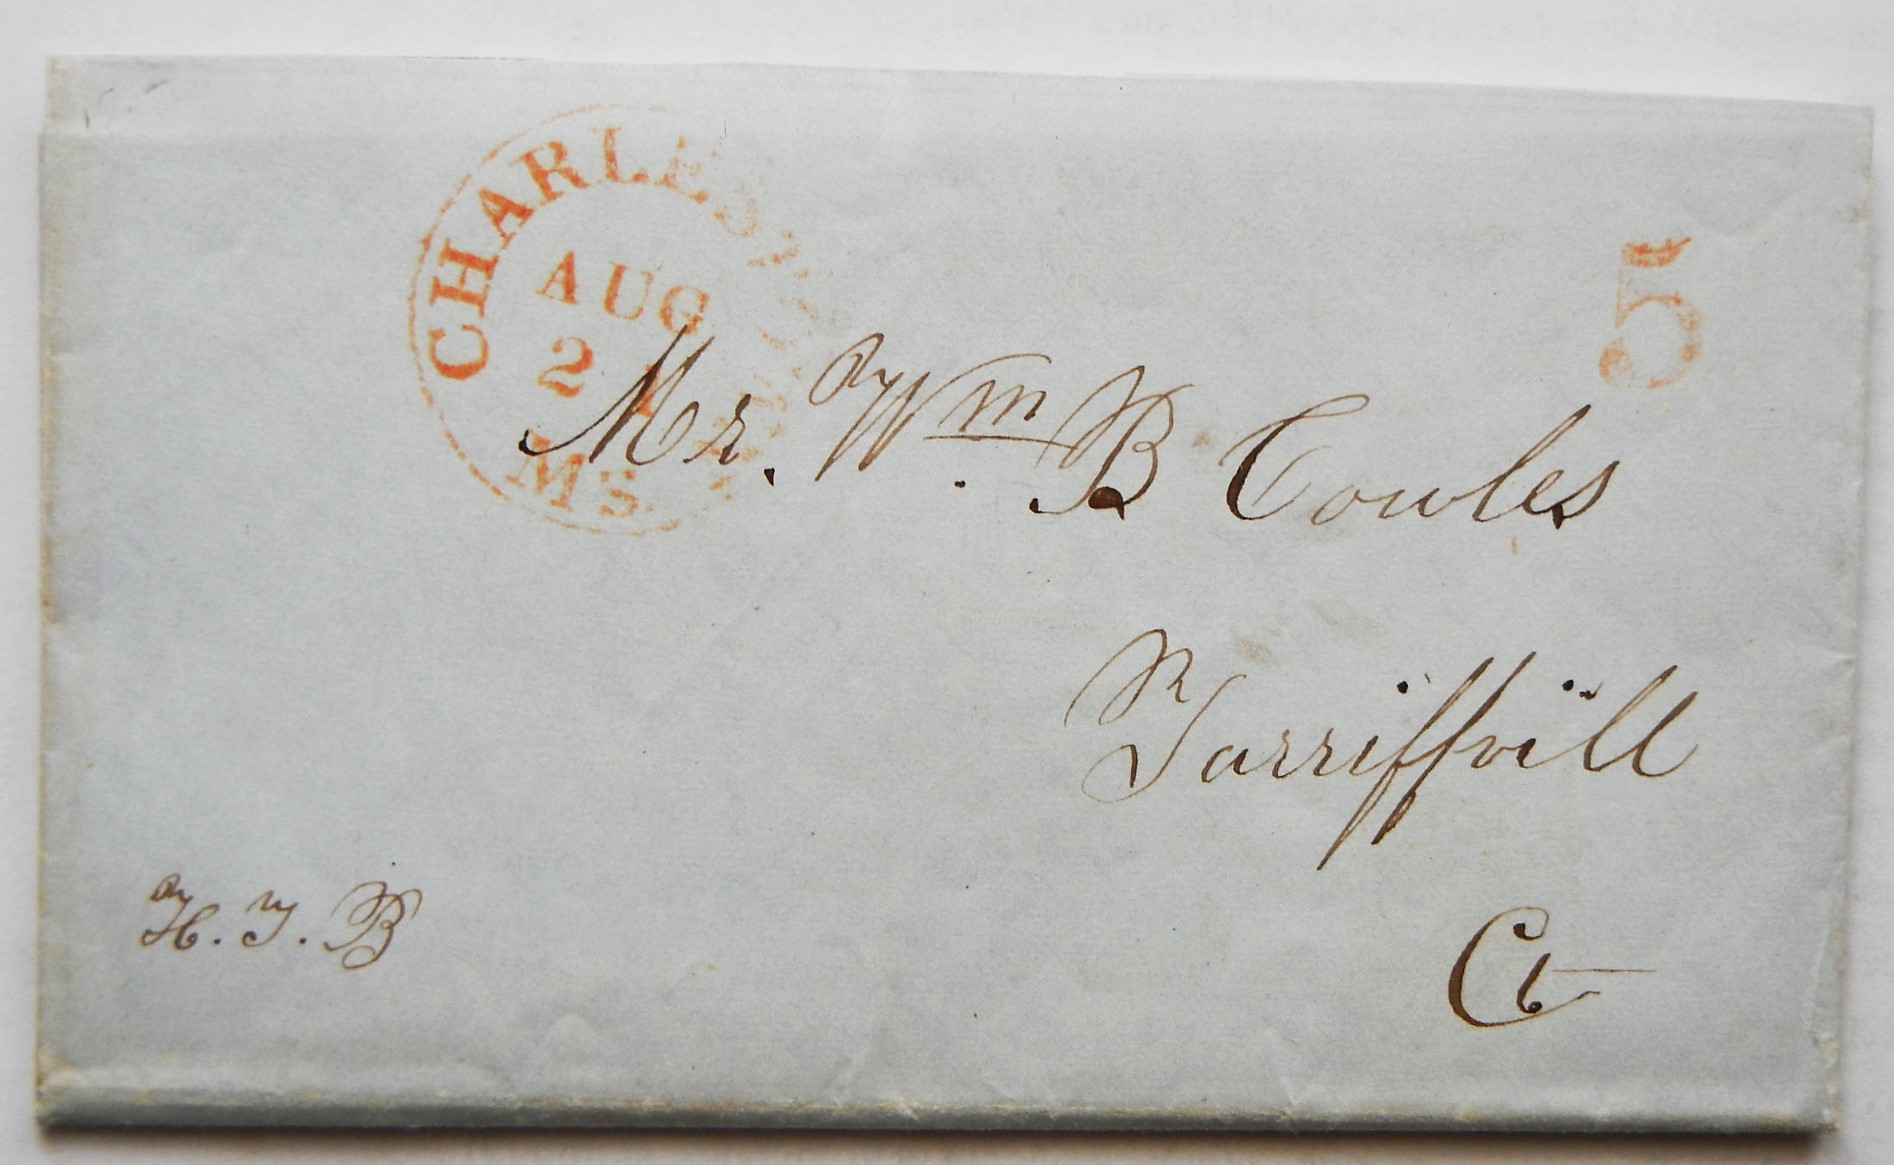 CHARLESTOWN
AUG
21
MS.
5
Mr. Wm. B Cowles
Tarriffvill
Ct
H. T. B